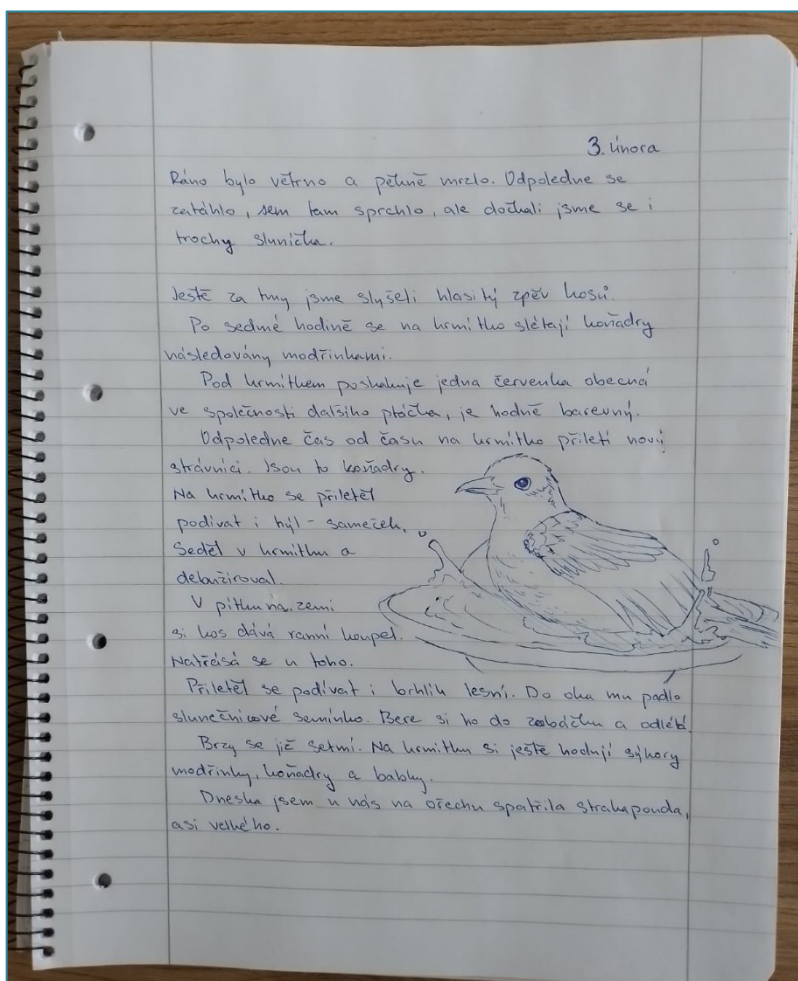 3. února
Ráno bylo větrno a pěkně mrzlo. Odpoledne se
zatáhlo, sem tam sprchlo, ale dočkali jsme se i
trochy sluníčka.
Ještě za tmy jsme slyšeli hlasitý zpěv kosů.
Po sedmé hodině se na krmítko slétají koňadry
následovány modřinkami.
Pod krmítkem poskakuje jedna červenka obecná
ve společnosti dalšího ptáčka, je hodně barevný.
Odpoledne čas od času na krmítko přiletí nový
strávníci. Jsou to koňadry.
Na krmítko se přiletěl
podívat i hýl - sameček.
Seděl v krmítku a
debužíroval.
V pítku na zemi
si kos dává ranní koupel.
Natřásá se u toho.
Přiletěl se podívat i brhlík lesní. Do oka mu padlo
slunečnicové semínko. Bere si ho do zobáčku a odlétá.
Brzy se již setmí. Na krmítku si ještě hodují sýkory
modřinky, koňadry a babky.
Dneska jsem u nás na ořechu spatřila strakapouda,
asi velkého.